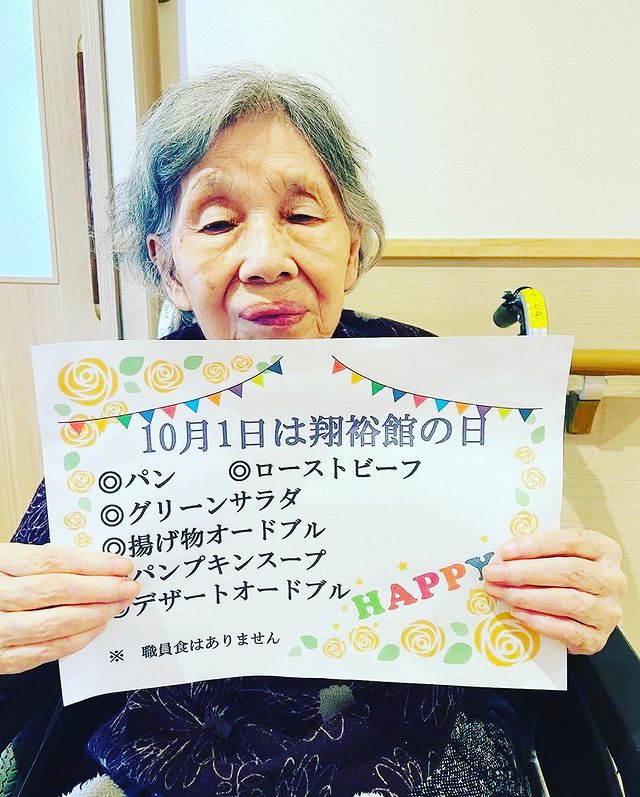 10月1日は翔裕館の日
◎パン ◎ローストビーフ
◎グリーンサラダ
◎揚げ物オードブル
パンプキンスープ
デザートオードブル
HAPPY
※ 職員食はありません